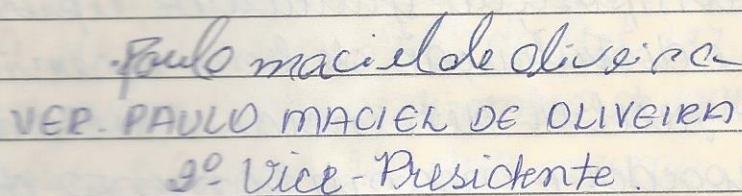 Paulo maciel de oliveira
VER. PAULO MACIEL DE OLIVEIRA
2º Vice-Presidente.